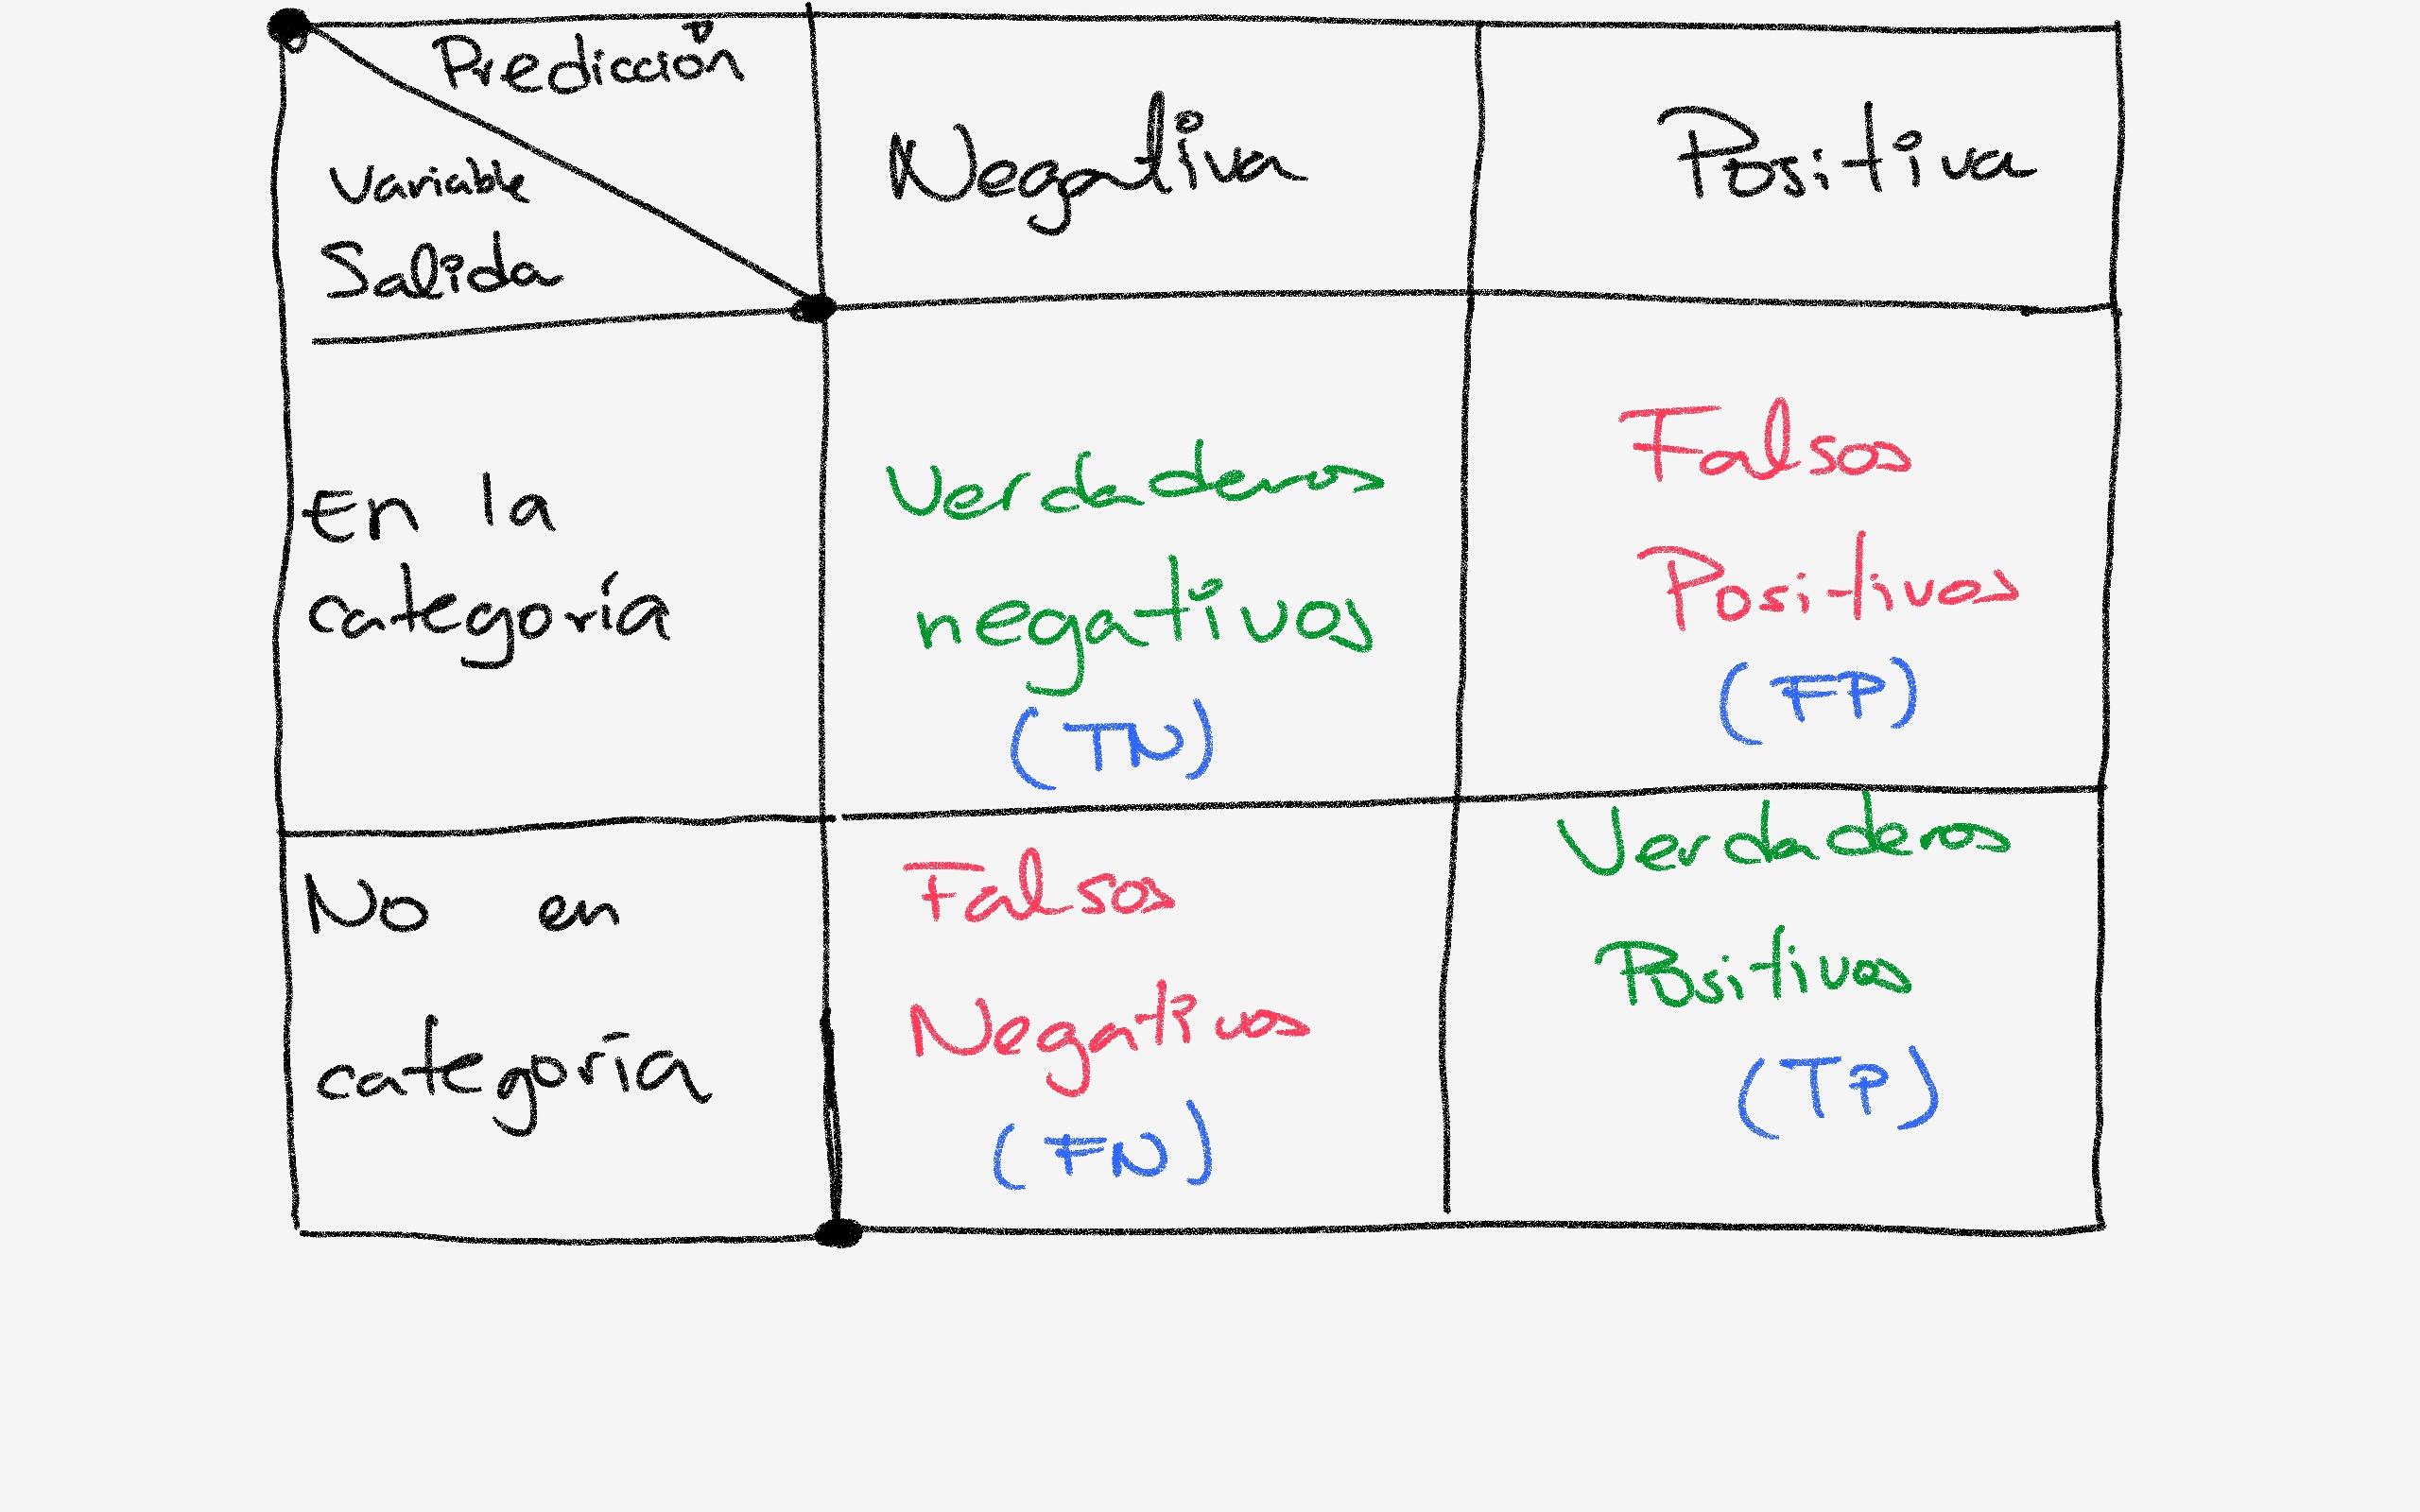 Predicción
Variable
Salida
Negativa
Positiva
En la
categoría
Verdaderos
negativos
(TN)
Falsos
Positivos
(FP)
No en
categoría
Falsos
Negativos
(FN)
Verdaderos
Positivos
(TP)